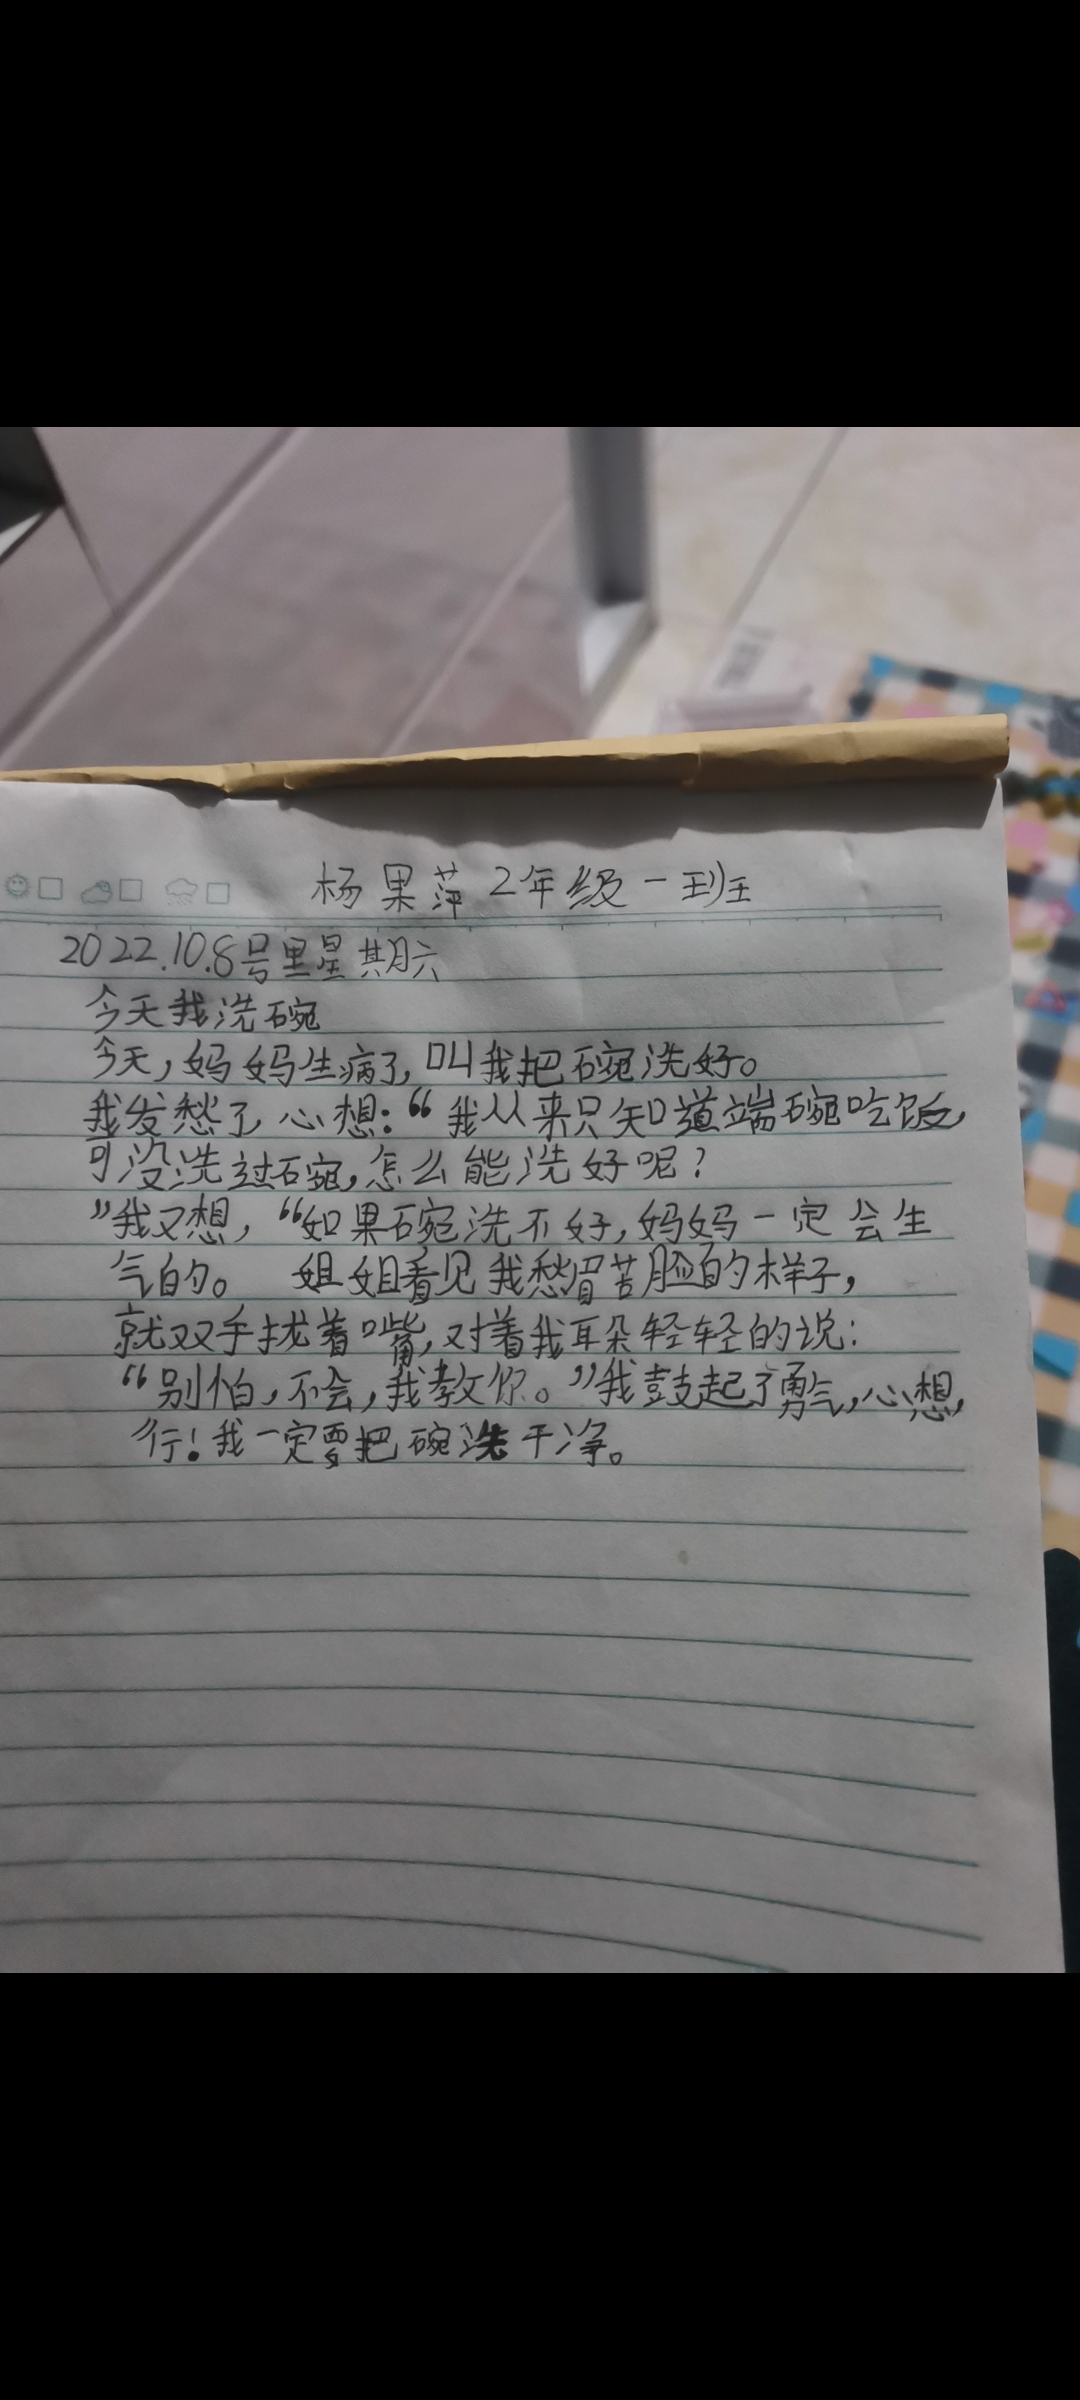 杨果萍2年级一班
2022.10.8号里星期六
今天我洗碗
今天,妈妈生病了,叫我把碗洗好。
我发愁了,心想:“我从来只知道端碗吃饭,
可没洗过碗,怎么能洗好呢?
”我又想,“如果碗洗不好,妈妈一定会生
气的。 姐姐看见我愁眉苦脸的样子,
就双手拢着嘴,对着我耳朵轻轻的说:
“别怕,不会,我教你。”我鼓起了勇气,心想,
行!我一定要把碗洗干净。